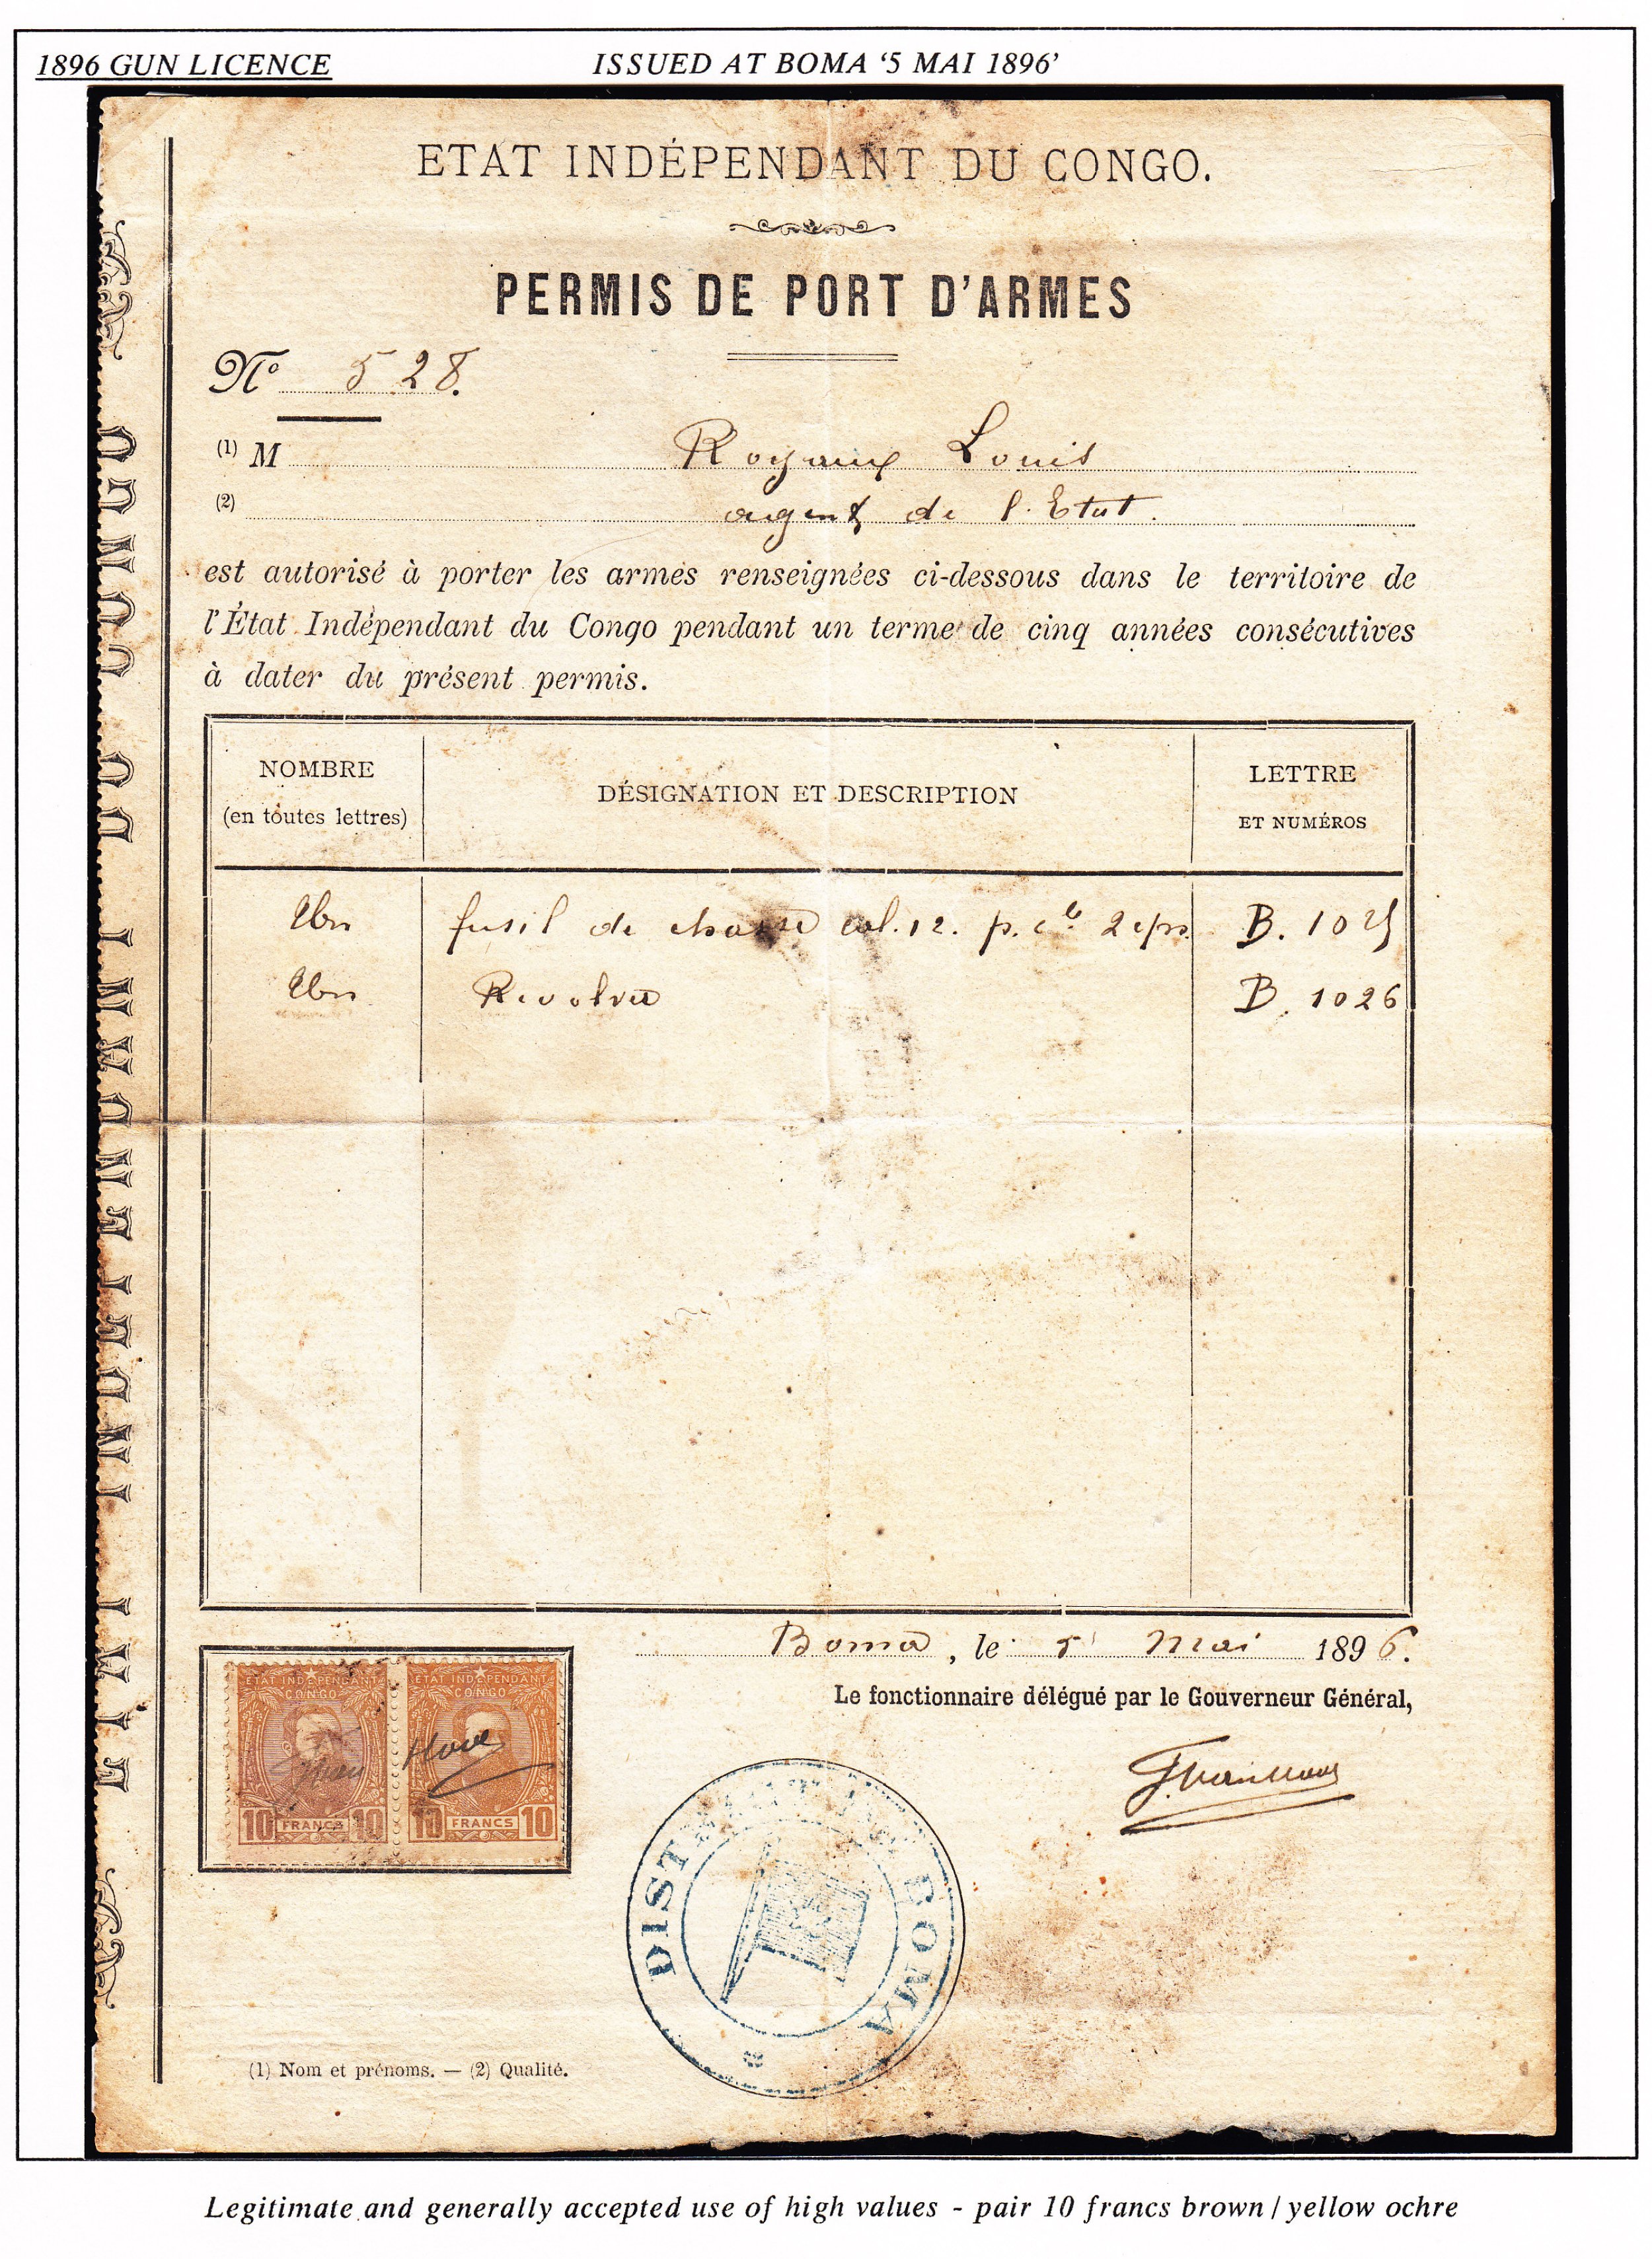 1896 GUN LICENCE
ISSUED AT BOMA ‘5 MAI 1896’
ETAT INDÉPENDANT DU CONGO.
PERMIS DE PORT D'ARMES
Nº 528.
(1) M Royaux Louis
(2) agent de l'Etat.
est autorisé à porter les armes renseignées ci-dessous dans le territoire de
l'État Indépendant du Congo pendant un terme de cinq années consécutives
à dater du présent permis.
NOMBRE
(en toutes lettres)
DÉSIGNATION ET DESCRIPTION
LETTRE
ET NUMÉROS
Un fusil de chasse cal. 12. p. cle 2 cps B. 1025
Un Revolver B. 1026
Boma, le 5 Mai 1896.
Le fonctionnaire délégué par le Gouverneur Général,
ETAT INDÉPENDANT
CONGO
10 FRANCS 10
ETAT INDÉPENDANT
CONGO
10 FRANCS 10
DISTRICT DE BOMA
ETAT INDÉPENDANT DU CONGO
(1) Nom et prénoms. — (2) Qualité.
Legitimate and generally accepted use of high values - pair 10 francs brown / yellow ochre